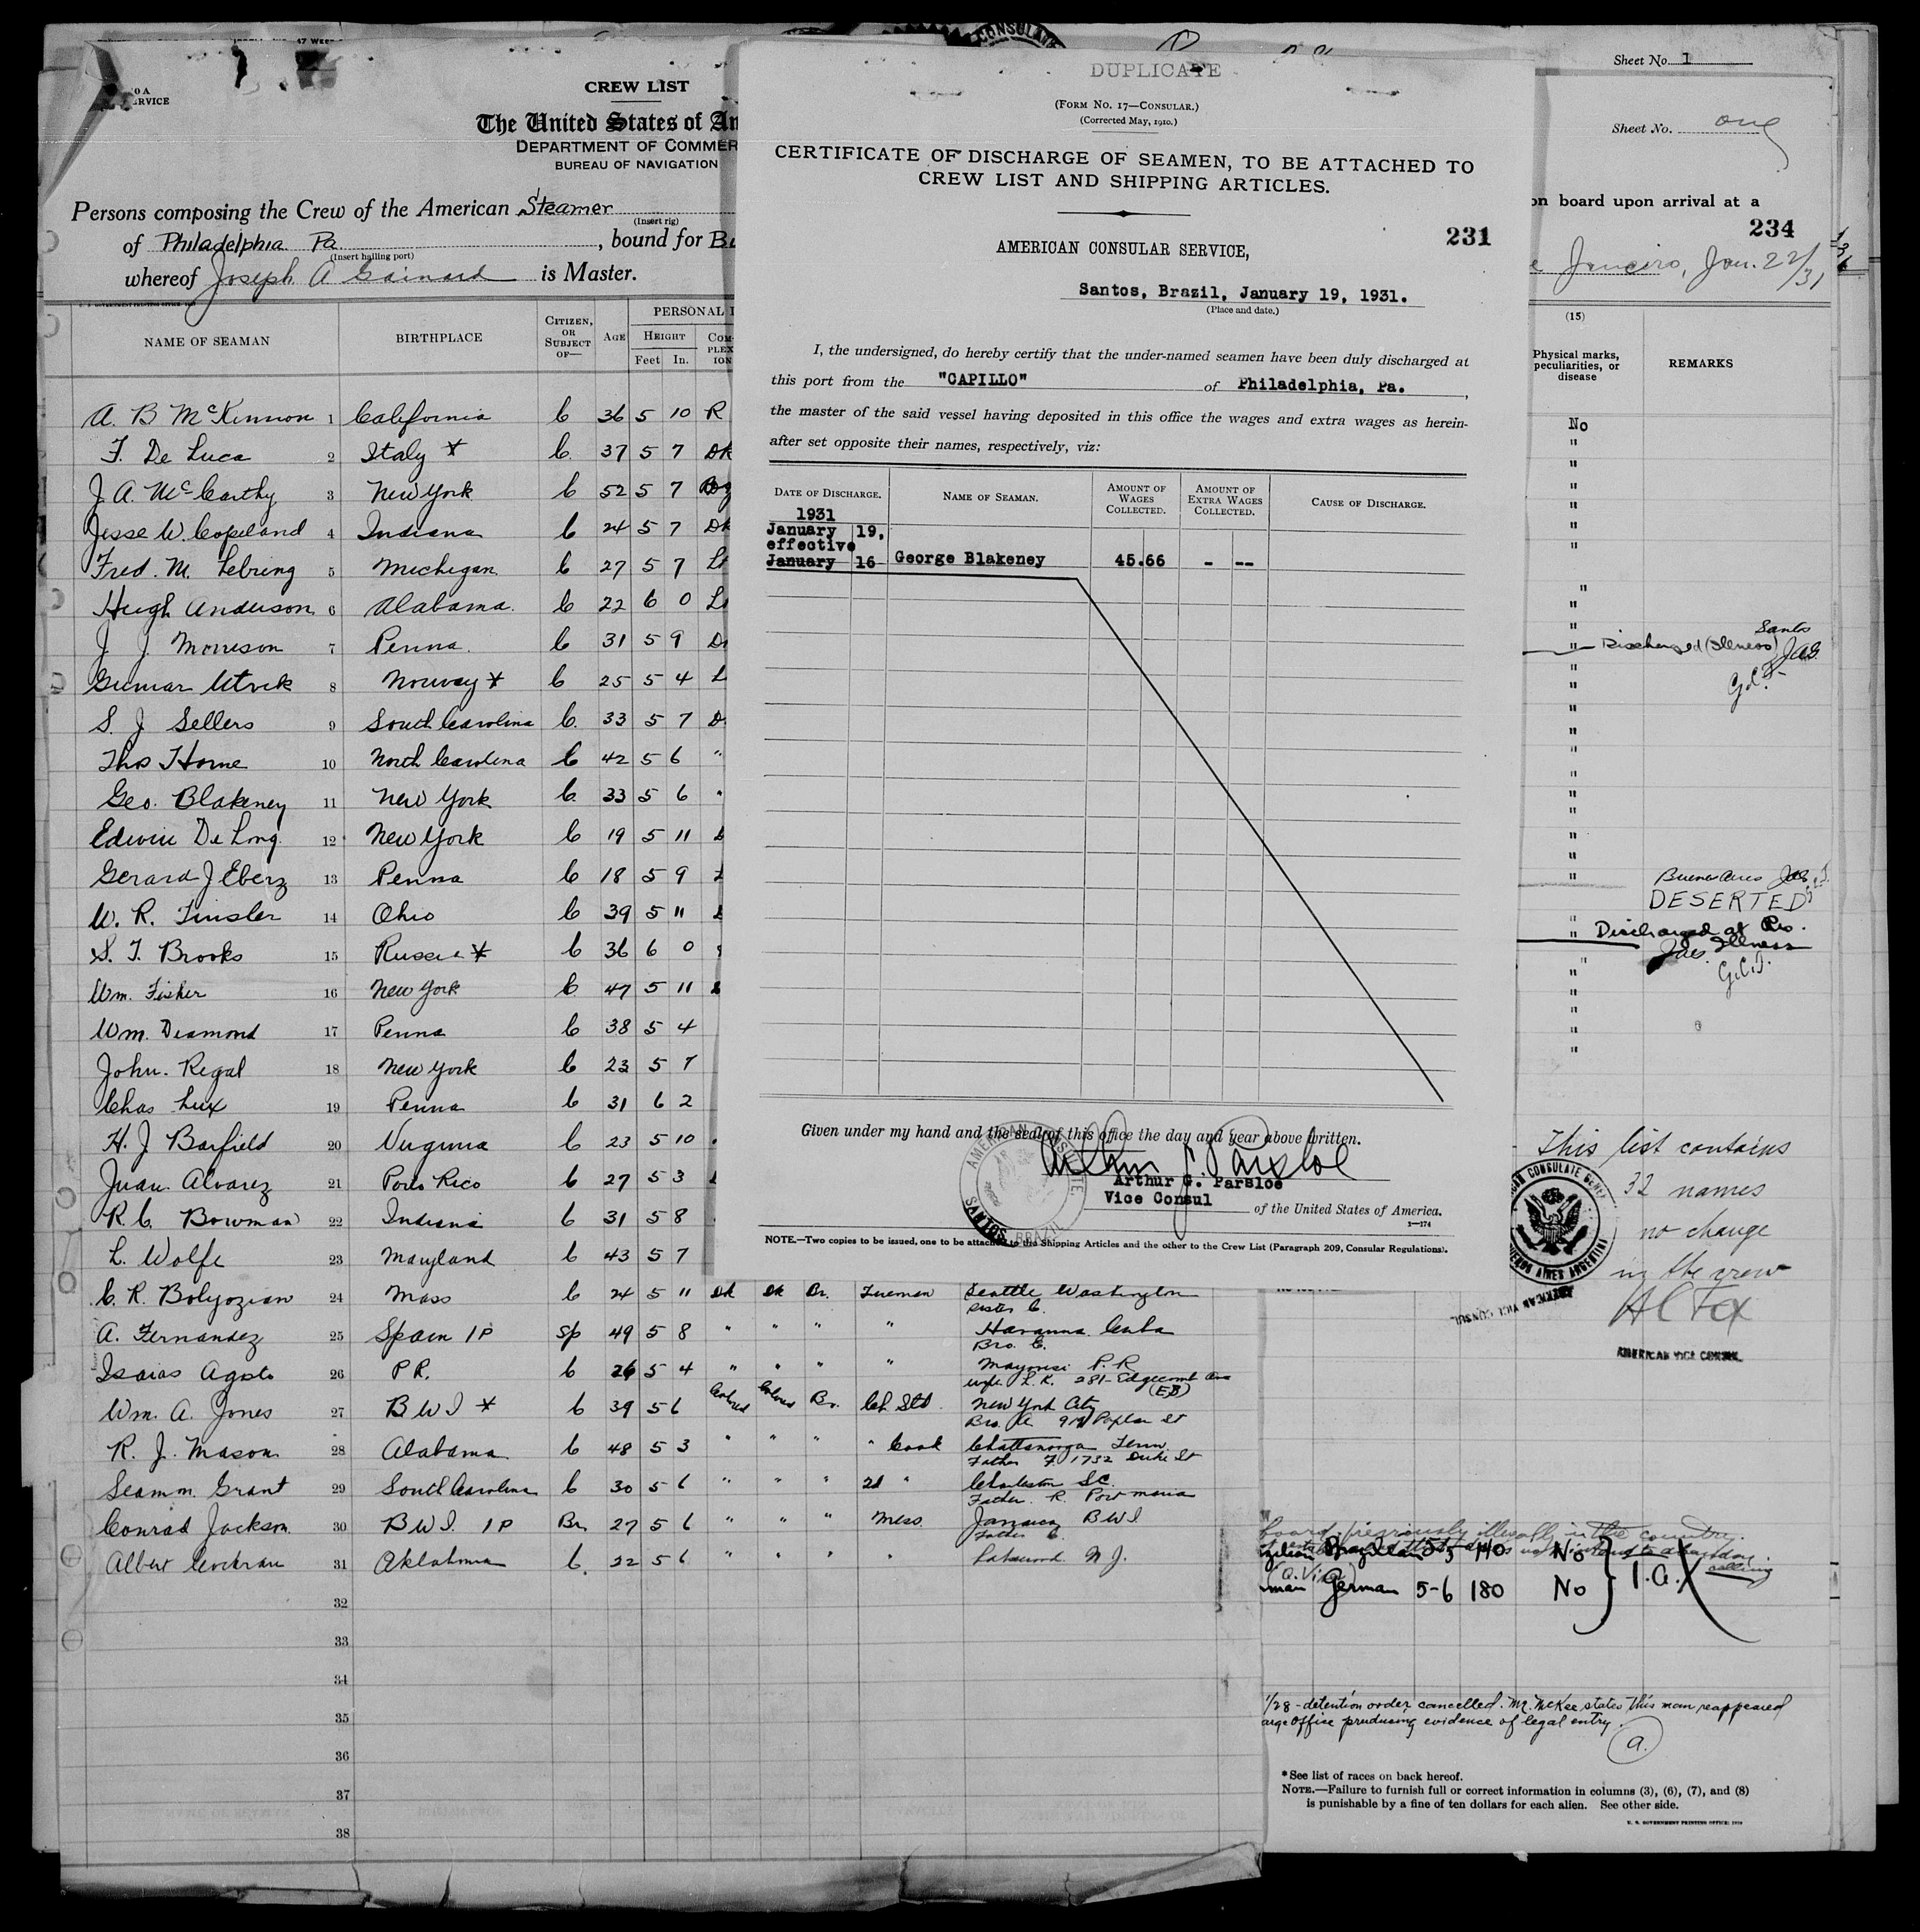 CREW LIST
The United States of
DEPARTMENT OF
BUREAU OF NAVIGATION
Persons composing the Crew of the American Steamer
(Insert rig)
of Philadelphia Pa. , bound for
(Insert hailing port)
whereof Joseph A Gainard is Master.
NAME OF SEAMAN BIRTHPLACE CITIZEN, OR SUBJECT OF— AGE HEIGHT Feet In.
A. B McKinnon 1 California C 36 5 10 R
F. De Luca 2 Italy * C. 37 5 7 DK
J A. McCarthy 3 New York C 52 5 7
Jesse W. Copeland 4 Indiana C 24 5 7 DK
Fred. M. Lebring 5 Michigan C 27 5 7
Hugh Anderson 6 Alabama. C 22 6 0
J J Morrison 7 Penna. C 31 5 9
8 Norway * C 25 5 4
S. J Sellers 9 South Carolina C. 33 5 7
Thos Horne 10 North Carolina C 42 5 6 "
Geo. Blakeney 11 New York C 33 5 6 "
Edwin De Long 12 New York C 19 5 11
Gerard J Eberz 13 Penna C 18 5 9
W. R. Tinsler 14 Ohio C 39 5 11
S. T. Brooks 15 Russia * C 36 6 0
Wm. Fisher 16 New York C 47 5 11
Wm. Diamond 17 Penna C 38 5 4
John. Regal 18 New York C 23 5 7
Chas Lux 19 Penna C 31 6 2
H. J Barfield 20 Virginia C 23 5 10
Juan Alvarez 21 Porto Rico C 27 5 3
R. C. Bowman 22 Indiana C 31 5 8
L. Wolfe 23 Maryland C 43 5 7
C. R. Bolyozian 24 Mass C 24 5 11 DK DK Br. Fireman Seattle Washington
Sister C.
A. Fernandez 25 Spain 1P Sp 49 5 8 " " " " Havanna Cuba
Bro. C.
Isaias Agosto 26 P R. C 26 5 4 " " " " P. R
Wife L. K. 281- Edgecomb Ave
Wm. A. Jones 27 B W I * C 39 5 6 Colored Colored Br. Ch. Std. New York City
Bro. A Poplar St
R. J. Mason 28 Alabama C 48 5 3 " " " " Cook Chattanooga Tenn.
Father F. 1732 Duke St
Grant 29 South Carolina C 30 5 6 " " " 2d " Charleston SC.
Father. R.
Conrad Jackson 30 B W I. 1P Br. 27 5 6 " " " Mess. Jamaica B W I.
Father C.
Albert Cockran 31 Oklahma C. 22 5 6 " " " " Lakewood N J.
32
33
34
35
36
37
38
DUPLICATE
(FORM NO. 17—CONSULAR.)
(Corrected May, 1910.)
CERTIFICATE OF DISCHARGE OF SEAMEN, TO BE ATTACHED TO
CREW LIST AND SHIPPING ARTICLES.
231
AMERICAN CONSULAR SERVICE,
Santos, Brazil, January 19, 1931.
(Place and date.)
I, the undersigned, do hereby certify that the under-named seamen have been duly discharged at
this port from the "CAPILLO" of Philadelphia, Pa. ,
the master of the said vessel having deposited in this office the wages and extra wages as herein-
after set opposite their names, respectively, viz:
DATE OF DISCHARGE. NAME OF SEAMAN. AMOUNT OF WAGES COLLECTED. AMOUNT OF EXTRA WAGES COLLECTED. CAUSE OF DISCHARGE.
1931
January 19,
effective
January 16 George Blakeney 45.66 - --
Given under my hand and the seal of this office the day and year above written.
Arthur G. Parsloe
Arthur G. Parsloe
Vice Consul of the United States of America.
1—174
AMERICAN CONSULATE. SANTOS BRAZIL
NOTE.—Two copies to be issued, one to be attached to the Shipping Articles and the other to the Crew List (Paragraph 209, Consular Regulations).
Sheet No. 1
Sheet No. one
on board upon arrival at a
234
Janeiro, Jan. 22/31
(15)
Physical marks, peculiarities, or disease REMARKS
No
Santos
Discharged (Illness) JAG.
G.C.T.
Buenos Aires JAG.
DESERTED
Discharged at Rio.
JAG. Illness
G.C.T.
This list contains
32 names
no change
in the crew
AMERICAN VICE CONSUL
board previously illegally in the country.
5-5 140 No
German 5-6 180 No
1/28 - detention order cancelled. Mr. McKee states this man reappeared
office producing evidence of legal entry.
a.
*See list of races on back hereof.
NOTE.—Failure to furnish full or correct information in columns (3), (6), (7), and (8)
is punishable by a fine of ten dollars for each alien. See other side.